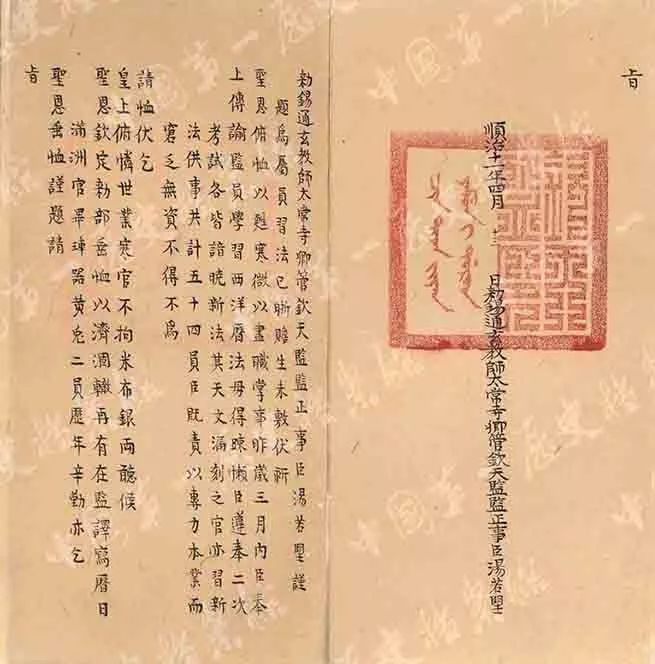 旨
順治十一年四月 日勅錫通玄教師太常寺卿管欽天監監正事臣湯若望
勅錫通玄教師太常寺卿管欽天監監正事臣湯若望謹
題為屬員習法已勤贍生未敷伏祈
聖恩俯恤以慰寒微以盡職掌事昨歲三月內臣奉
上傳諭監員學習西洋曆法毋得疎懶臣遵奉二次
考試各皆諳曉新法其天文漏刻之官亦習新
法供事共計五十四員臣既責以專力本業而
窘乏無資不得不為
請恤伏乞
皇上俯憐世業寒官不拘米布銀兩聽候
聖恩欽定勅部垂恤以濟涸轍再有在監譯寫曆日
滿洲官畢瑋器黃兔二員歷年辛勤亦乞
聖恩垂恤謹題請
旨